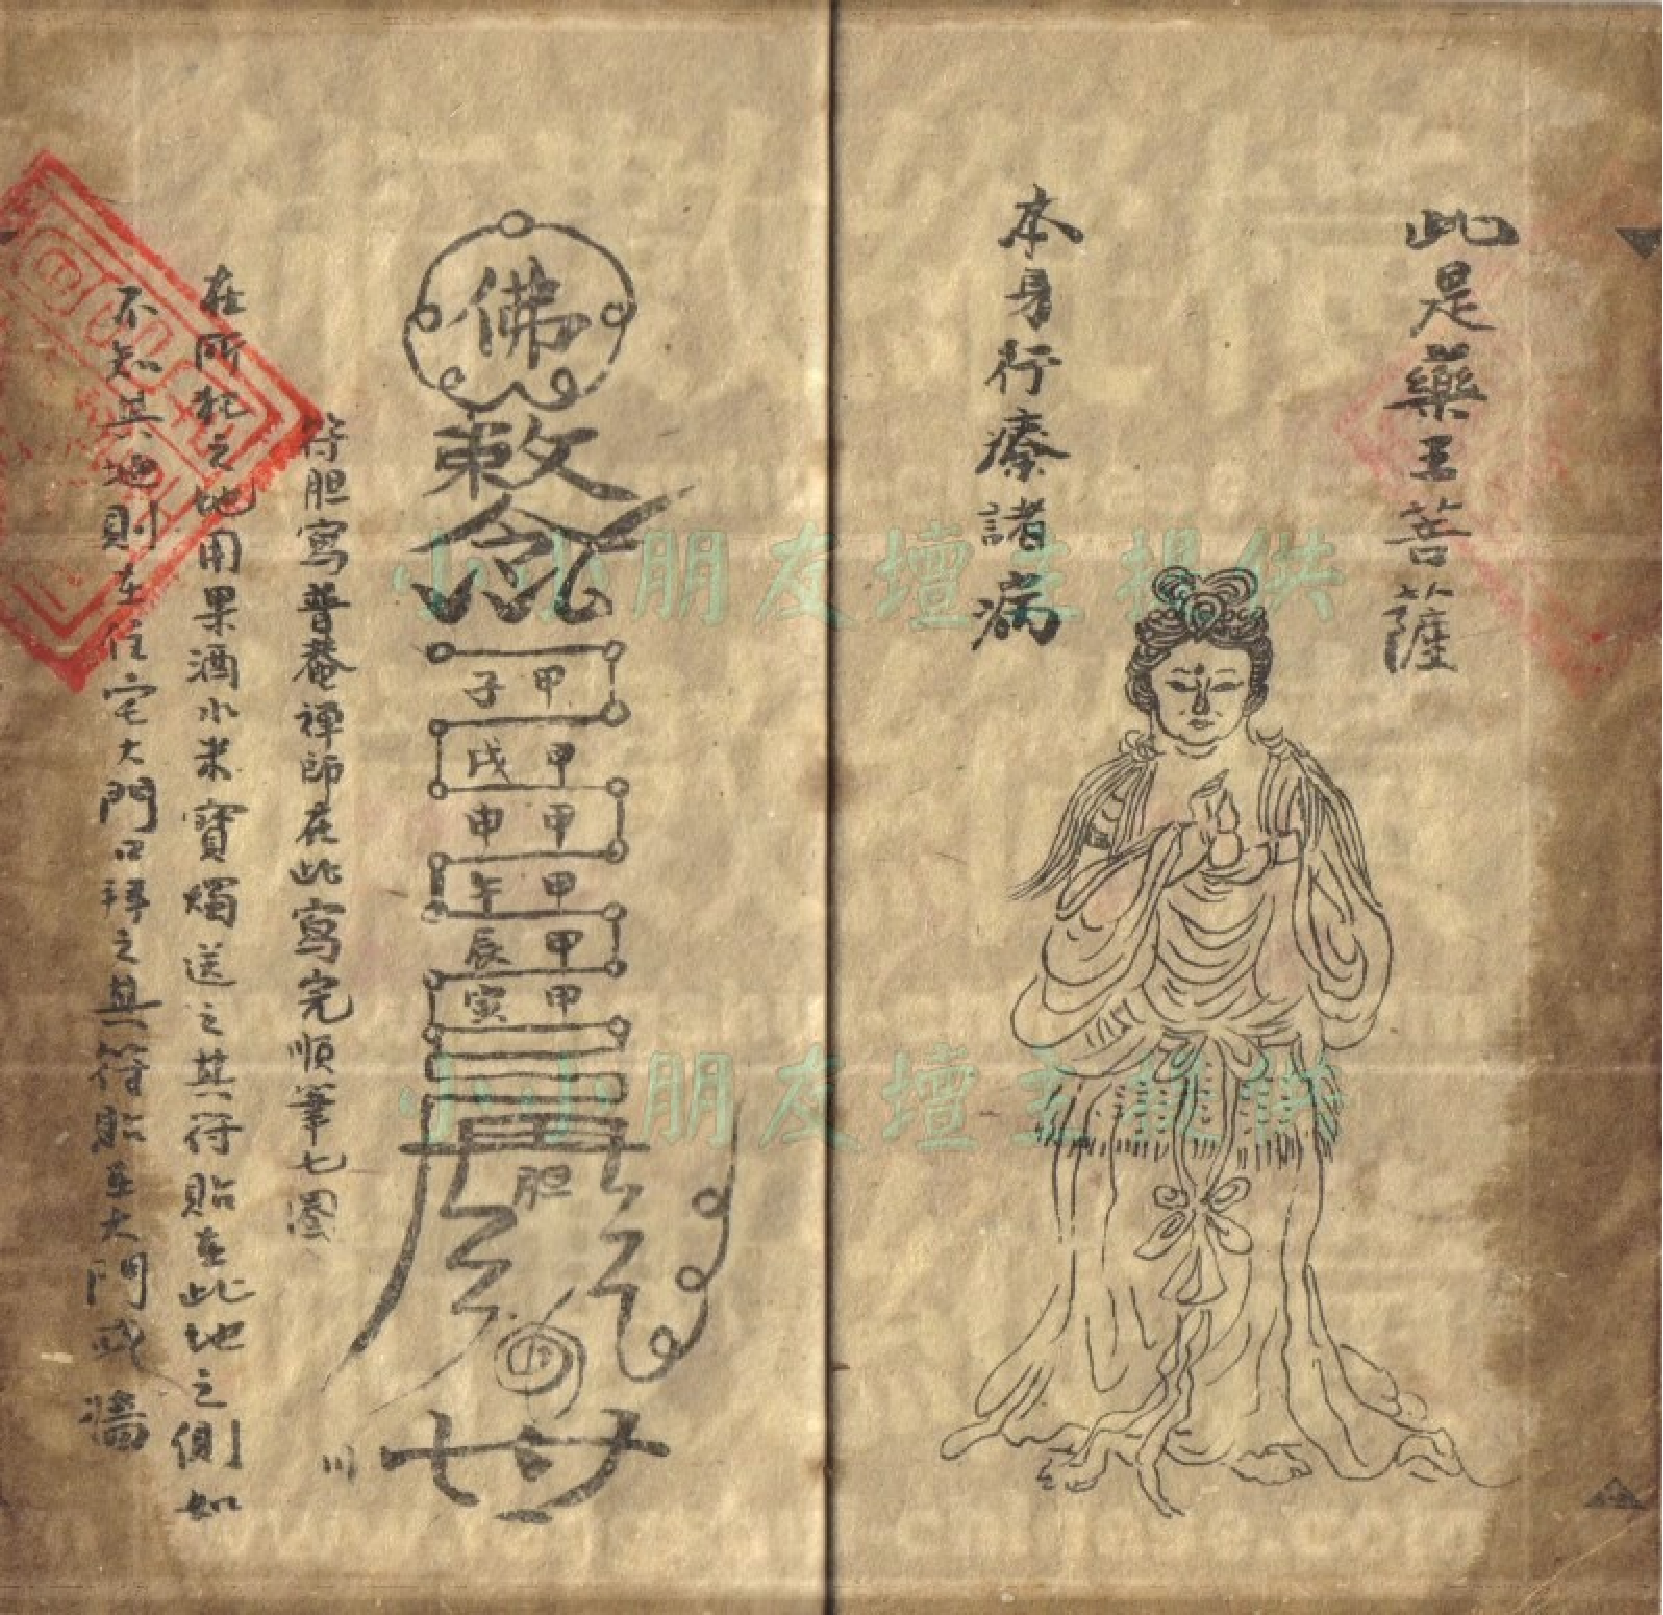 此是藥王菩薩
本身行療諸病
佛
敕令
甲子
甲戌
甲申
甲午
甲辰
甲寅
胆
符胆寫普菴禪師在此寫完順筆七圈
在所犯之地用果酒水米寶燭送之其符貼在此地之側如
不知其地則在住宅大門口拜之其符貼在大門或牆
小小朋友壇主提供
小小朋友壇主提供